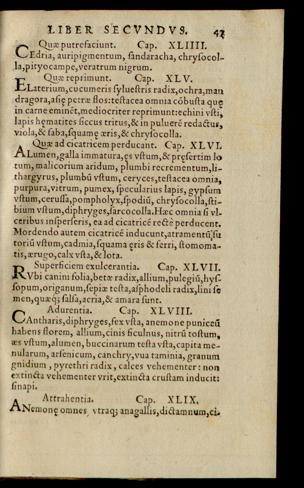 LIBER SECVNDVS. 43
Quæ putrefaciunt. Cap. XLIIII.
CEdria, auripigmentum, sandaracha, chrysocol-
la, pityocampe, veratrum nigrum.
Quæ reprimunt. Cap. XLV.
ELaterium, cucumeris syluestris radix, ochra, man
dragora, asię petræ flos: testacea omnia cōbusta quę
in carne eminēt, mediocriter reprimunt: echini vsti,
lapis hęmatites siccus tritus, & in puluerē redactus,
viola, & faba, squamę æris, & chrysocolla.
Quæ ad cicatricem perducant. Cap. XLVI.
ALumen, galla immatura, ęs vstum, & pręsertim lo
tum, malicorium aridum, plumbi recrementum, li-
thargyrus, plumbū vstum, ceryces, testacea omnia,
purpura, vitrum, pumex, specularius lapis, gypsum
vstum, cerussa, pompholyx, spodiū, chrysocolla, sti-
bium vstum, diphryges, sarcocolla. Hæc omnia si vl-
ceribus insperseris, ea ad cicatricē rectè perducent.
Mordendo autem cicatricē inducunt, atramentū, su
toriū vstum, cadmia, squama ęris & ferri, stomoma-
tis, ærugo, calx vsta, & lota.
Superficiem exulcerantia. Cap. XLVII.
RVbi canini folia, betæ radix, allium, pulegiū, hys-
sopum, origanum, sepiæ testa, asphodeli radix, lini se
men, quæq; salsa, acria, & amara sunt.
Adurentia. Cap. XLVIII.
CAntharis, diphryges, fex vsta, anemone puniceū
habens florem, allium, cinis ficulnus, nitrū tostum,
æs vstum, alumen, buccinarum testa vsta, capita me-
nularum, arsenicum, canchry, vua taminia, granum
gnidium, pyrethri radix, calces vehementer: non
extincta vehementer vrit, extincta crustam inducit:
sinapi.
Attrahentia. Cap. XLIX.
ANemonę omnes, vtraq; anagallis, dictamnum, ci-